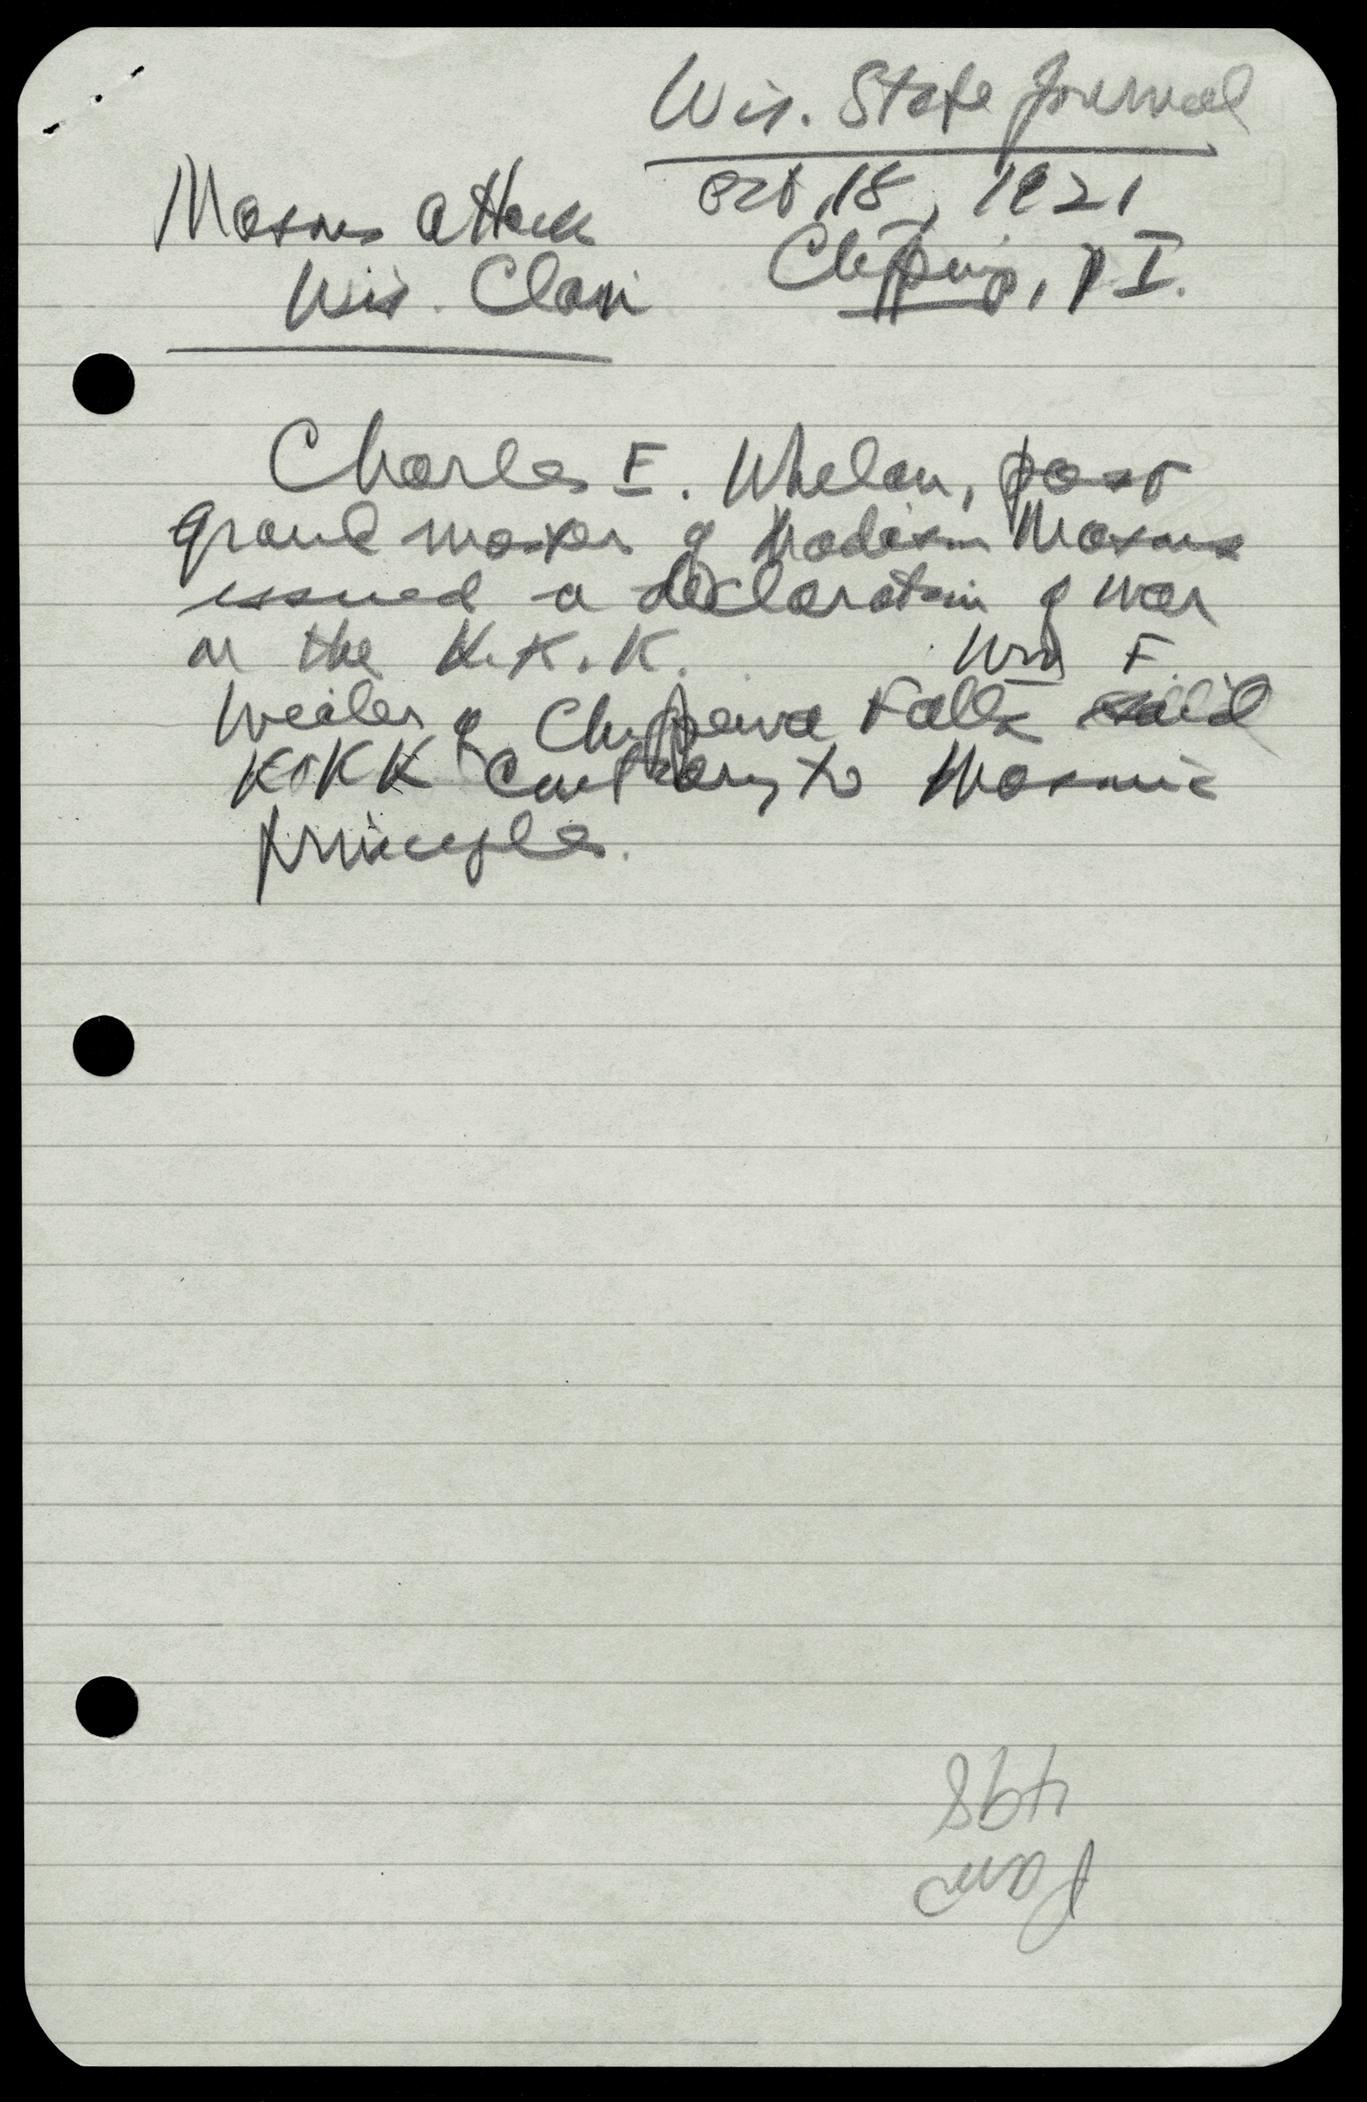 Wis. State Journal
Oct, 18, 1921
Masons attack
Wis. Clan
Clipping, p I.
Charles E. Whelan, past
grand master of Madison Masons
issued a declaration of war
on the K.K.K. Wm F
Weiler of Chippewa Falls said
KKK contrary to Masonic
principles.
498